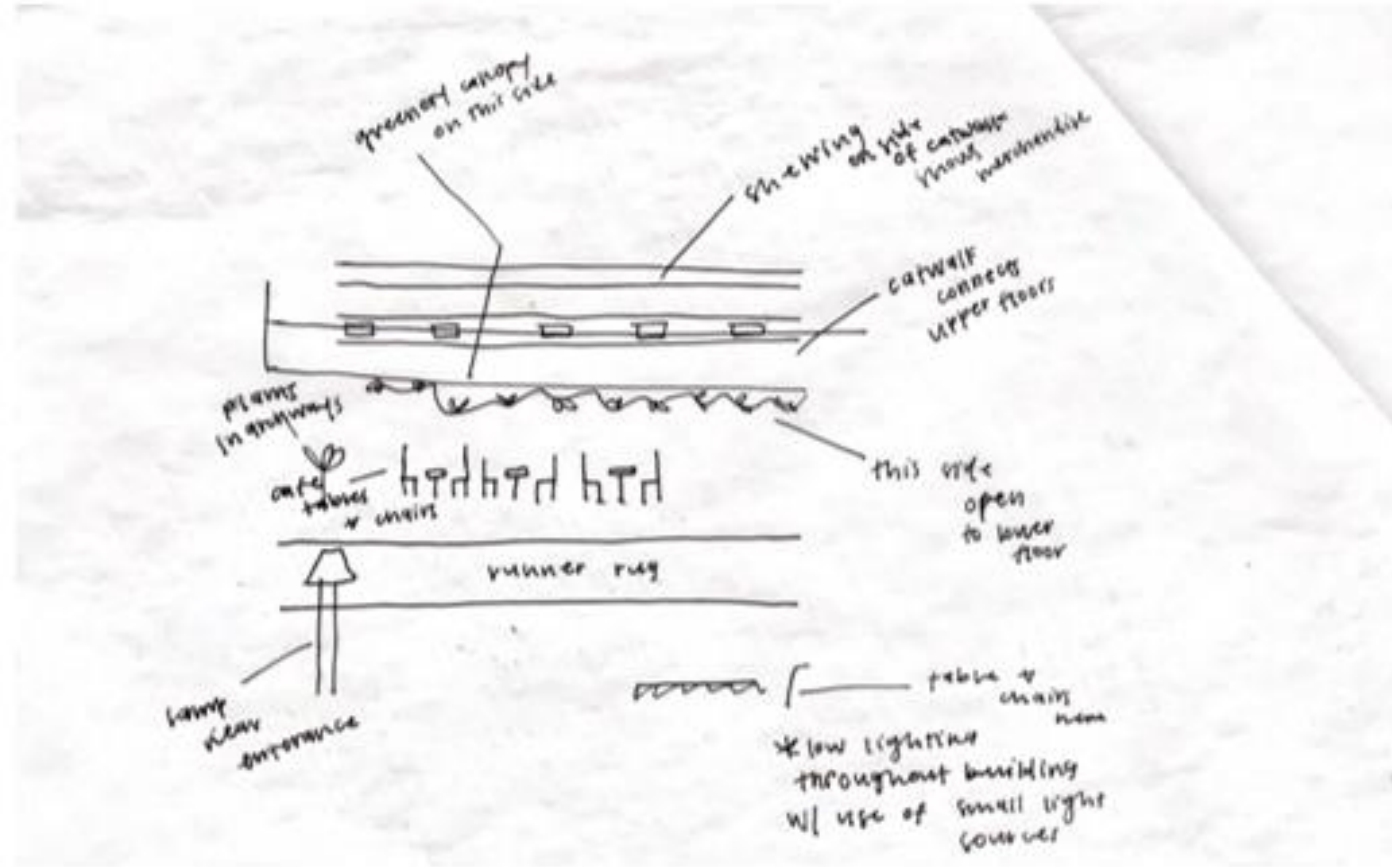 greenery canopy
on this side
on side
of catwalk
shows
merchandise
catwalk
connects
upper floors
plants
in archways
cafe
tables
& chairs
this side
open
to lower
floor
runner rug
lamp
near
entrance
table &
chairs
here
*low lighting
throughout building
w/ use of small light
sources